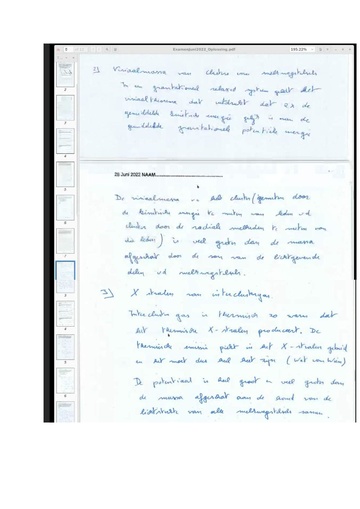 Examenjuni2022_Oplossing.pdf
2) Viriaalmassa van clusters van melkwegstelsels
In een gravitationeel relaxed systeem geldt het
viriaaltheorema dat uitdrukt dat 2x de
gemiddelde kinetische energie gelijk is aan de
gemiddelde gravitationele potentiële energie
28 Juni 2022 NAAM
De viriaalmassa van het cluster (gemeten door
de kinetische energie te meten van leden v.d
cluster door de radiale snelheden te meten van
die leden) is veel groter dan de massa
afgeschat door de som van de lichtgevende
delen v.d melkwegstelsels.
3) X stralen van interclustergas.
Intercluster gas is thermisch zo warm dat
het thermische X-stralen produceert. De
thermische emissie piekt in het X-stralen gebied
en het moet dus heel heet zijn (wet van Wien)
De potentiaal is heel groot en veel groter dan
de massa afgeschat aan de hand van de
lichtsterkte van alle melkwegstelsels samen.